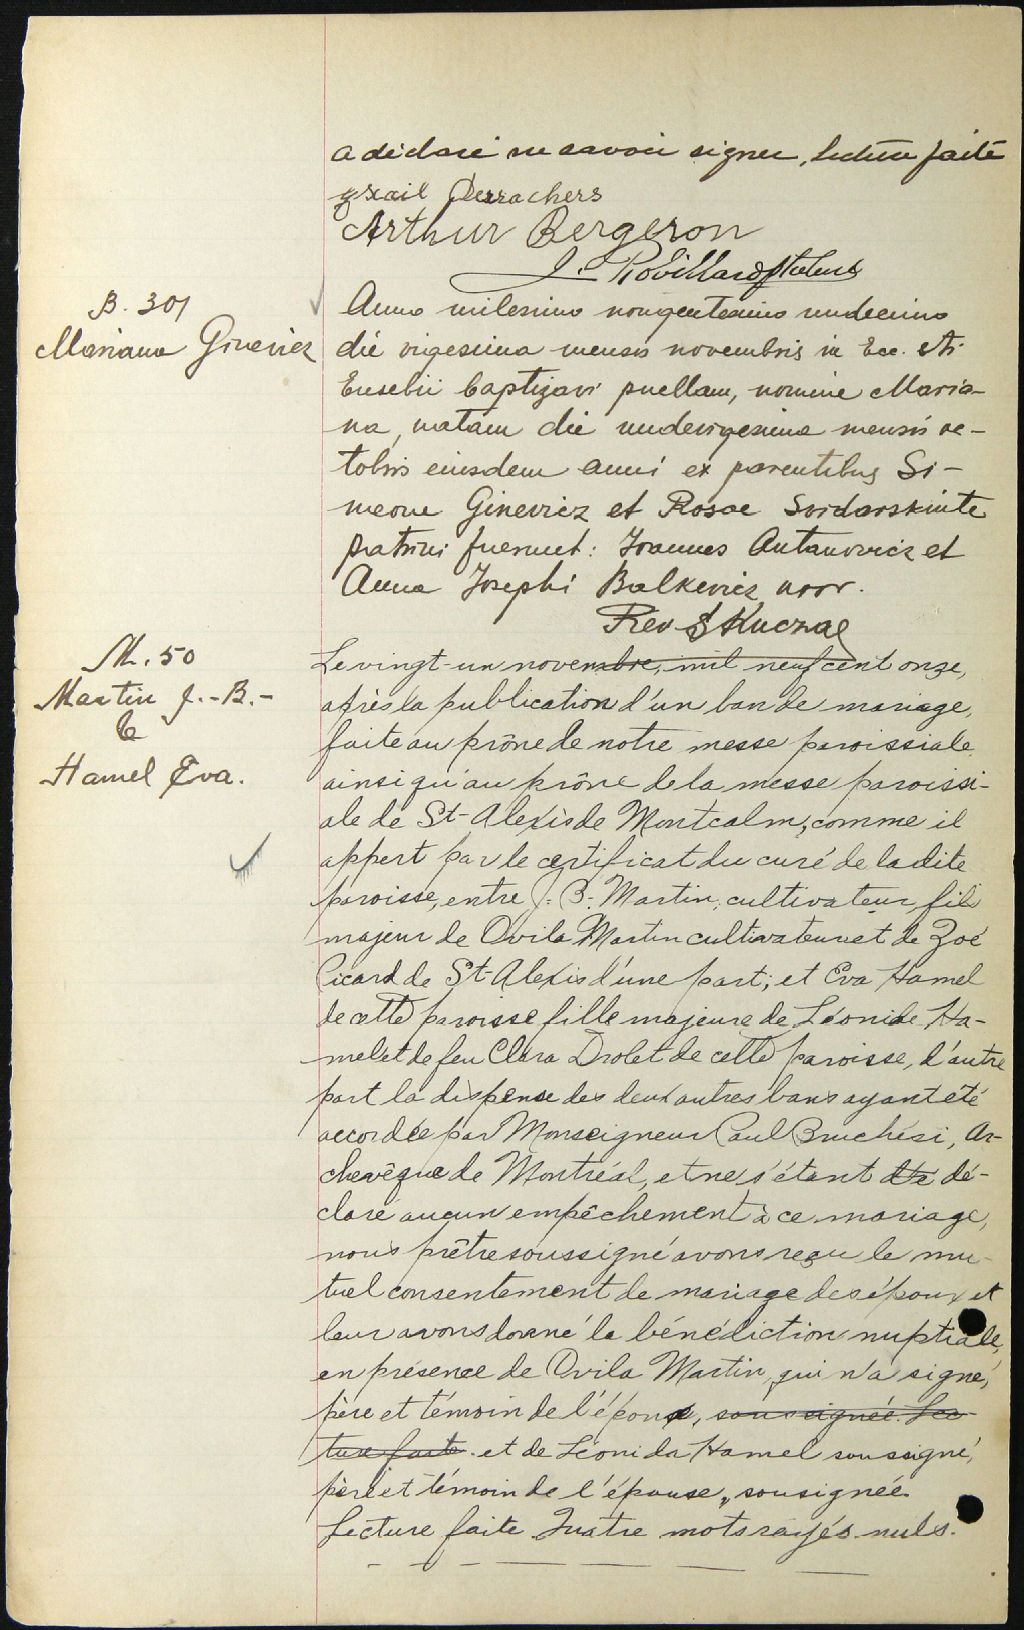 a déclaré ne savoir signer, lecture faite
Arthur Bergeron
J. Robillard ptre
B. 301
Mariana Gineviez
Anno milesimo nongentesimo undecimo
die vigesima mensis novembris in Ecc. Sti
Eusebii baptizavi puellam, nomine Maria-
na, natam die undevigesima mensis oc-
tobris eiusdem anni ex parentibus Si-
meone Gineviez et Rosae
patrini fuerunt: Joannes Antanoviez et
Anna Josephi Balkeviez uxor.
Rev S Kuczas
M. 50
Martin J.-B.-
&
Hamel Eva.
Le vingt-un novembre, mil neuf cent onze,
après la publication d'un ban de mariage,
faite au prône de notre messe paroissiale
ainsi qu'au prône de la messe paroissi-
ale de St-Alexis de Montcalm, comme il
appert par le certificat du curé de la dite
paroisse, entre J.-B. Martin, cultivateur, fils
majeur de Ovila Martin cultivateur et de Zoé
Picard de St-Alexis d'une part; et Eva Hamel
de cette paroisse fille majeure de Léonide Ha-
mel et de feu Clara Drolet de cette paroisse, d'autre
part la dispense des deux autres bans ayant été
accordée par Monseigneur Paul Bruchési, Ar-
chevêque de Montréal, et ne s'étant dé-
claré aucun empêchement à ce mariage,
nous prêtre soussigné avons reçu le mu-
tuel consentement de mariage des époux et
leur avons donné la bénédiction nuptiale,
en présence de Ovila Martin, qui n'a signé,
père et témoin de l'époux, soussignée. Lec-
ture faite. et de Léonida Hamel soussigné,
père et témoin de l'épouse, sousignée.
Lecture faite Quatre mots rayés nuls.